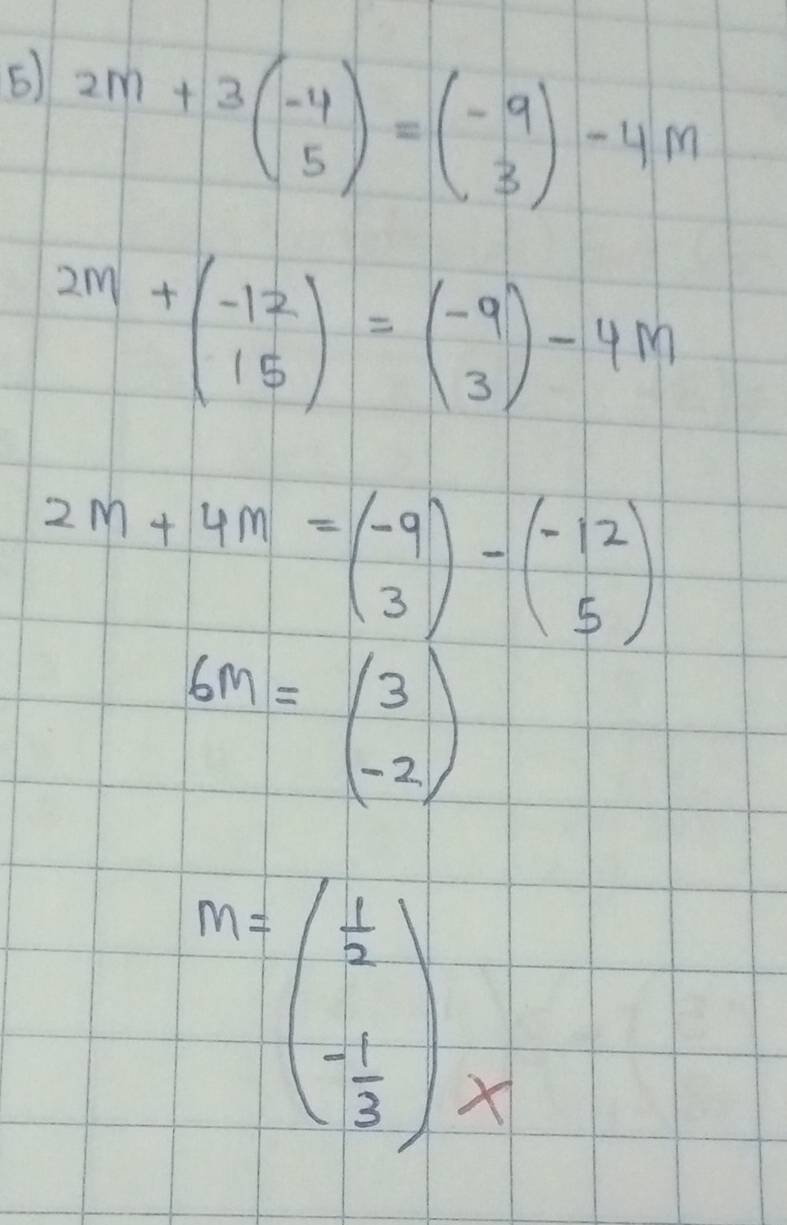 5) 2m + 3 (-4 5) = (-9 3) - 4m
2m + (-12 15) = (-9 3) - 4m
2m + 4m = (-9 3) - (-12 5)
6m = (3 -2)
m = (1/2 -1/3) ×